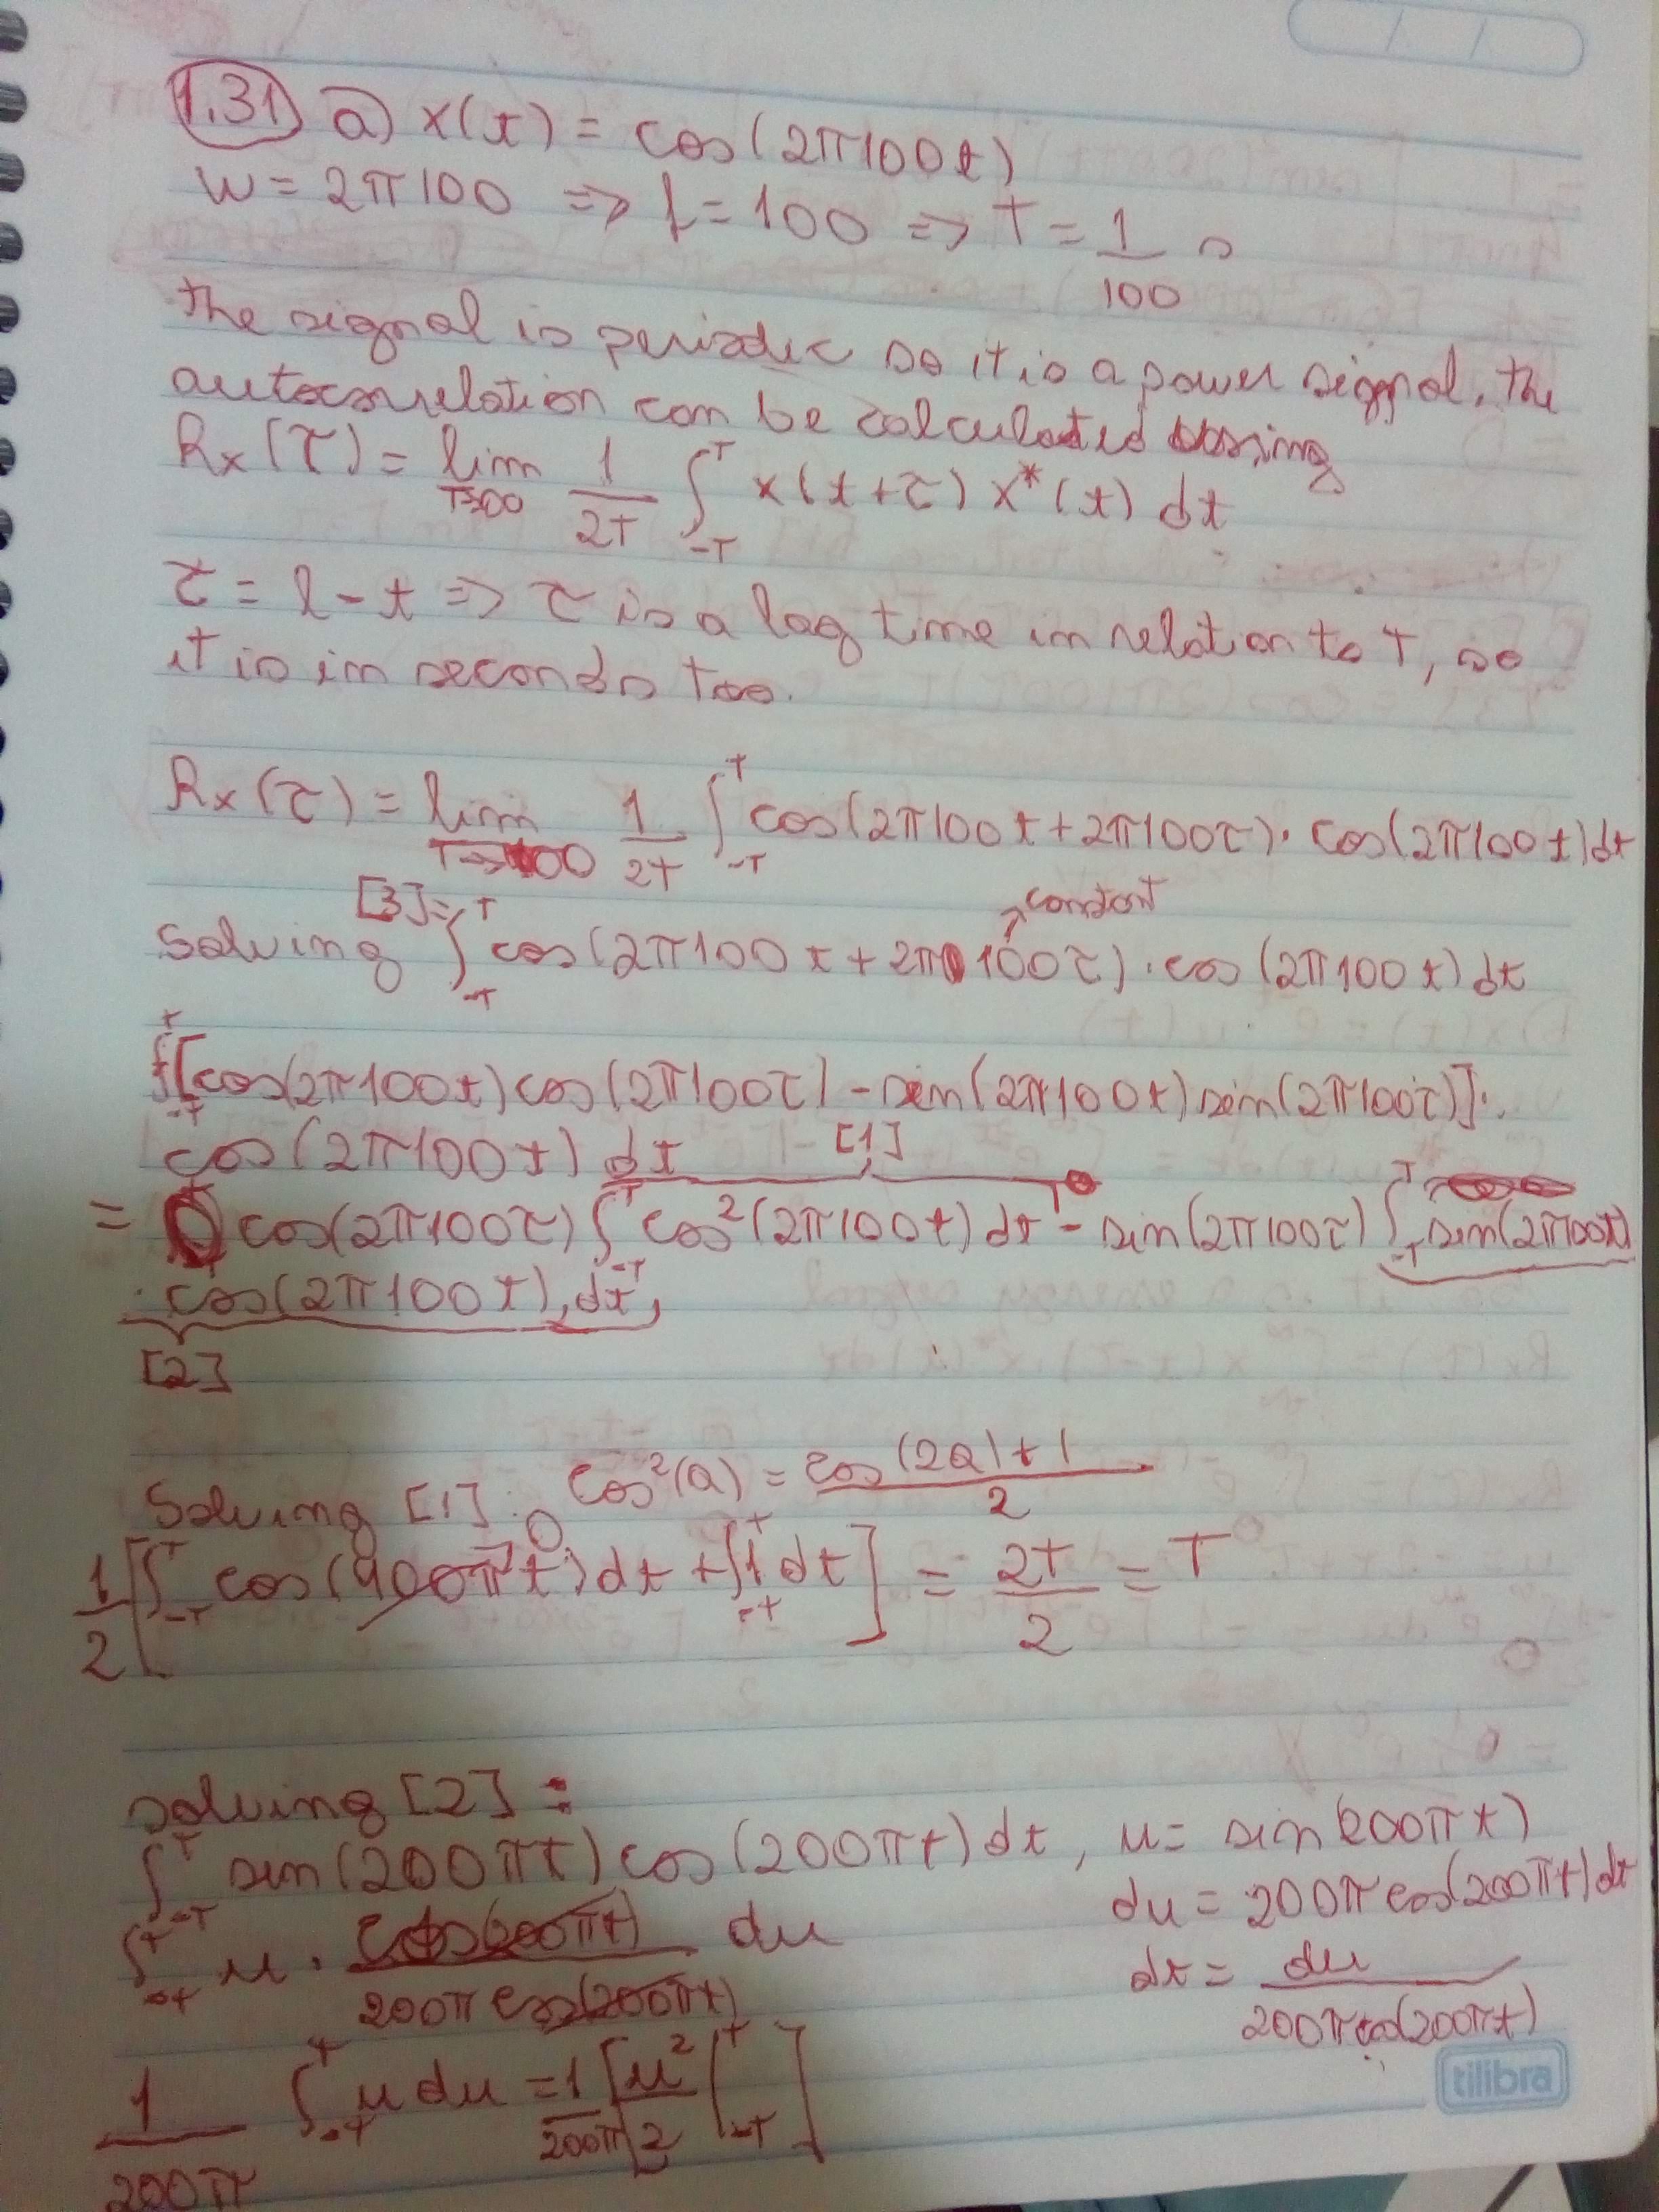 1.31 a) x(t) = cos(2π100t)
w = 2π100 => f = 100 => T = 1/100 s
the signal is periodic so it is a power signal, the
autocorrelation can be calculated using
Rx(τ) = lim T→∞ 1/2T ∫_-T^T x(t+τ) x*(t) dt
τ = l - t => τ is a lag time in relation to T, so
it is in seconds too.
Rx(τ) = lim T→∞ 1/2T ∫_-T^T cos(2π100t + 2π100τ) · cos(2π100t) dt
[3] =
constant
Solving ∫_-T^T cos(2π100t + 2π100τ) · cos(2π100t) dt
∫_-T^T [cos(2π100t) cos(2π100τ) - sin(2π100t) sin(2π100τ)] ·
cos(2π100t) dt [1]
= cos(2π100τ) ∫_-T^T cos²(2π100t) dt - sin(2π100τ) ∫_-T^T sin(2π100t)
· cos(2π100t) dt
[2]
Solving [1]: cos²(a) = cos(2a) + 1 / 2
1/2 [∫_-T^T cos(400πt) dt → 0 + ∫_-T^T 1 dt] = 2T/2 = T
solving [2]:
∫_-T^T sin(200πt) cos(200πt) dt, u = sin(200πt)
du = 200π cos(200πt) dt
∫_-T^T u · cos(200πt) / 200π cos(200πt) du
dt = du / 200π cos(200πt)
1/200π ∫_-T^T u du = 1/200π [u²/2 |_-T^T]
tilibra